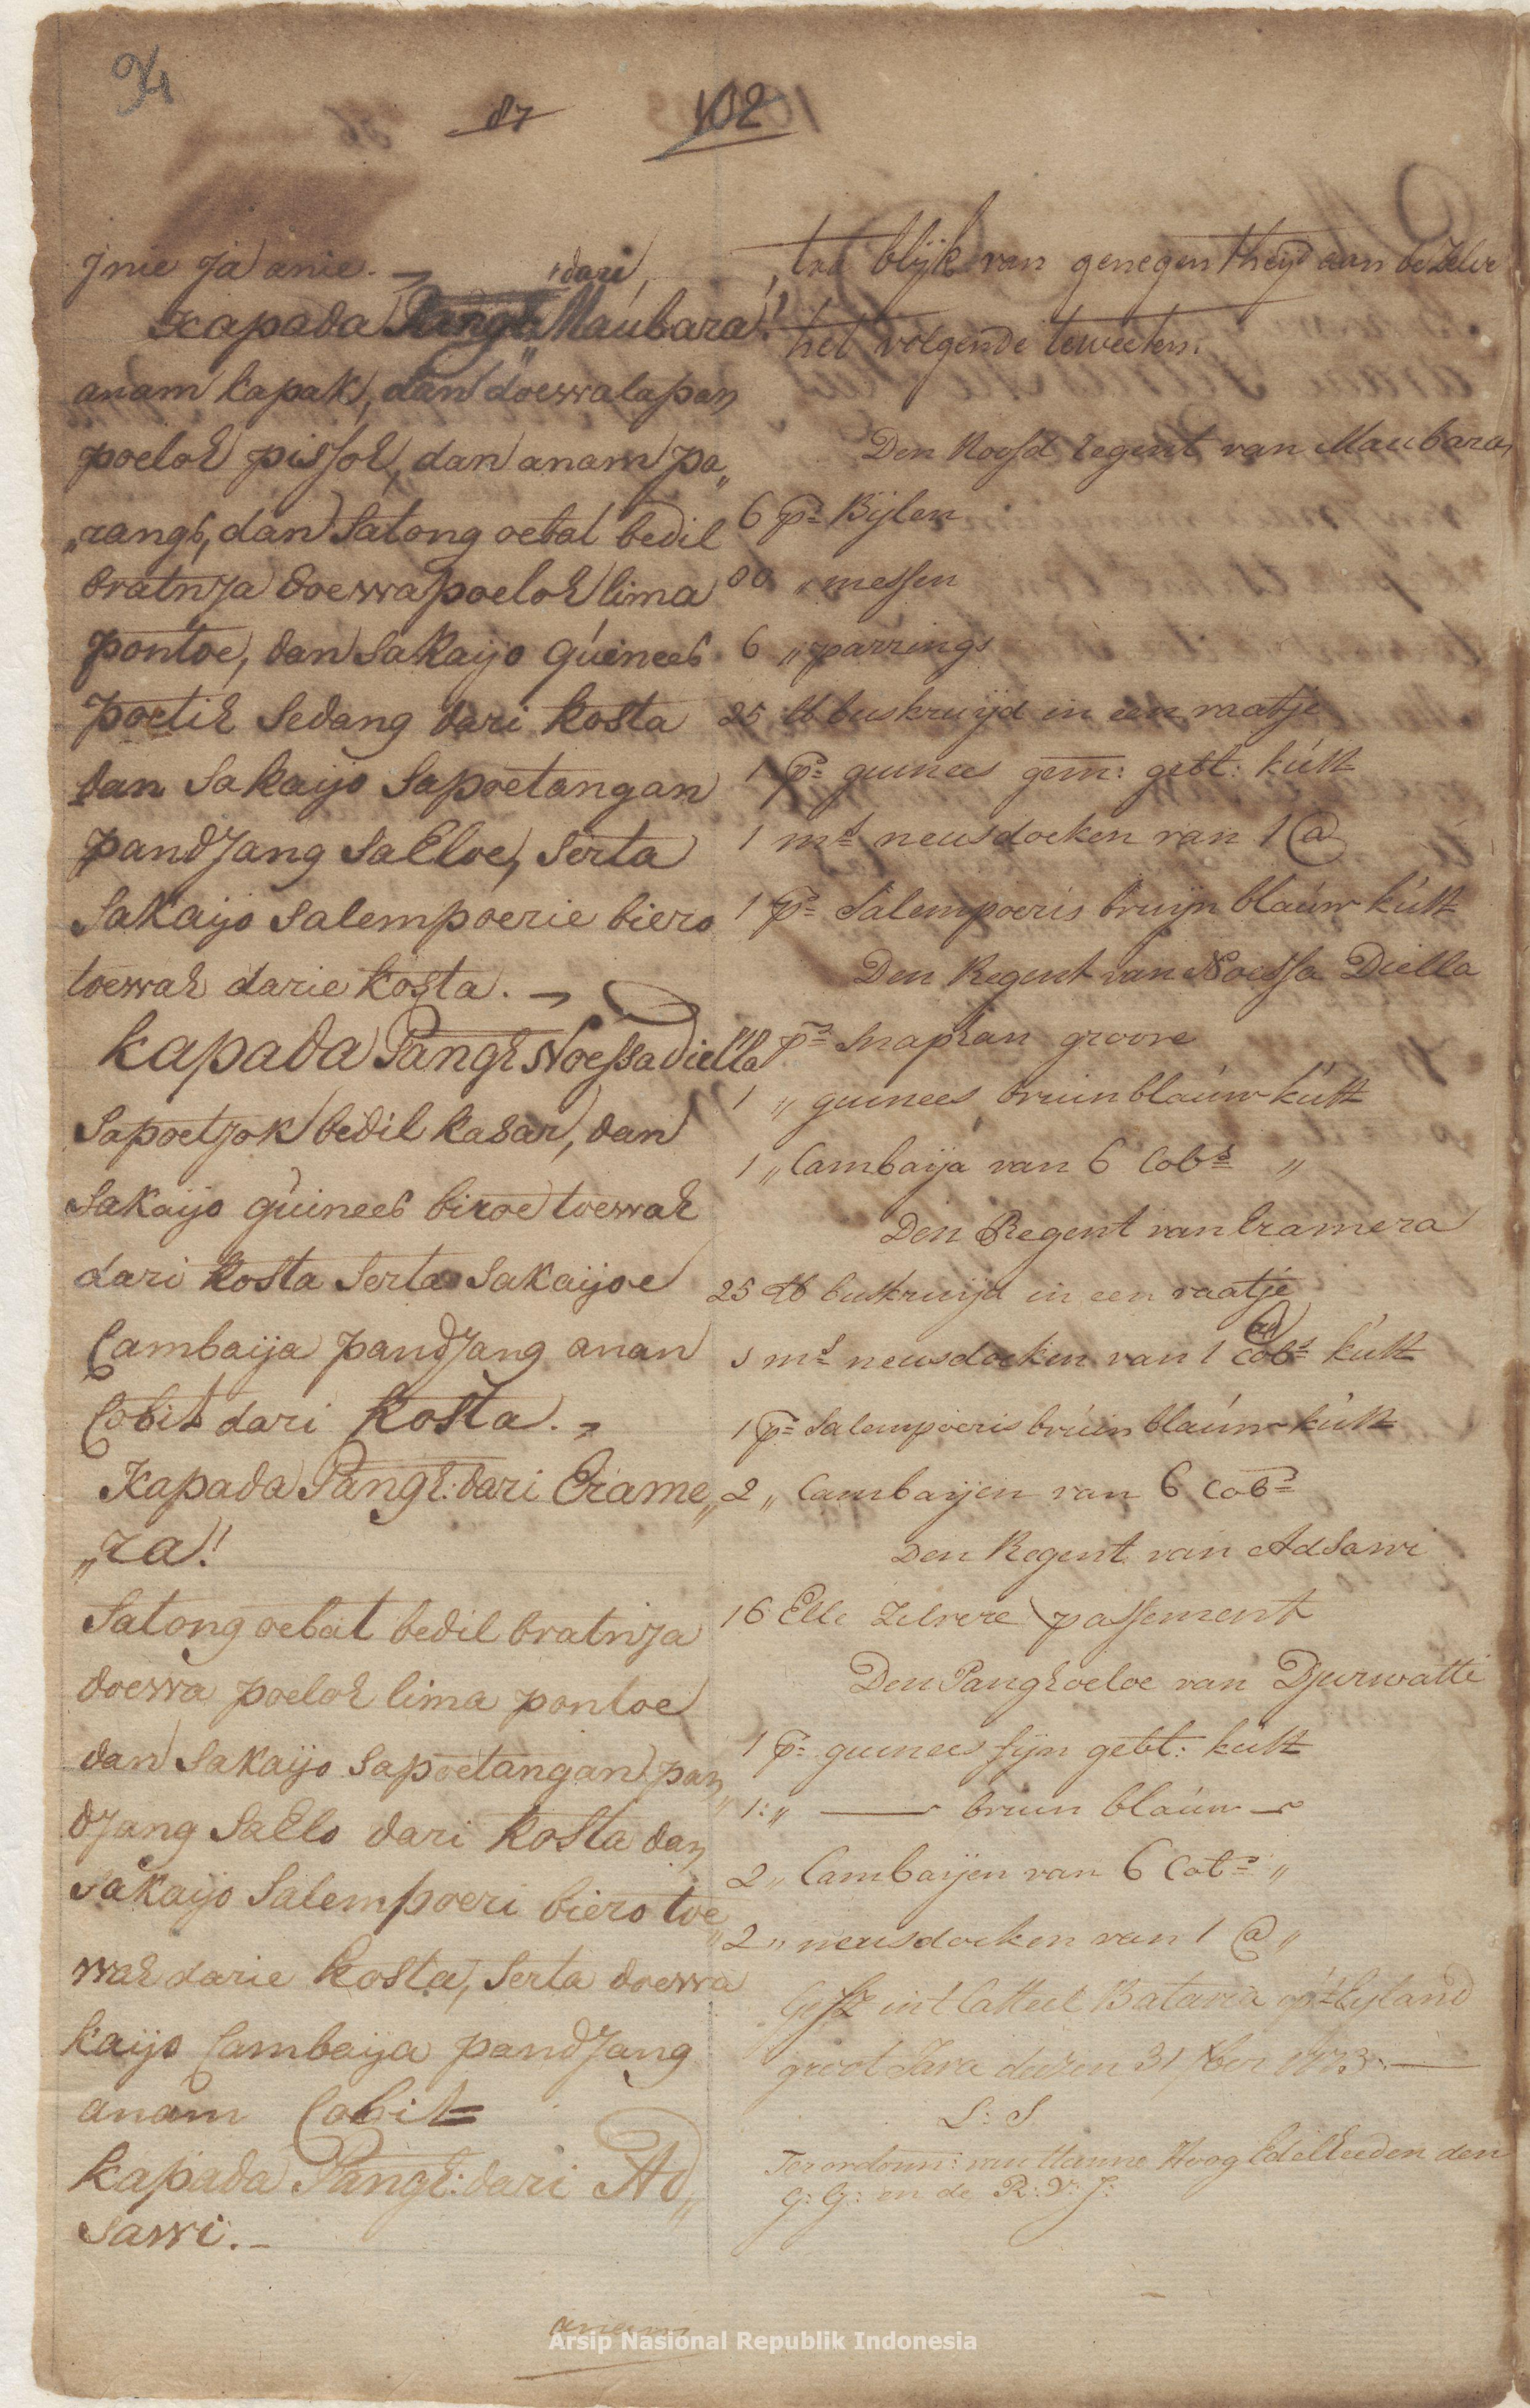 94
87
102
Jnie Ja anie. —
dari
Kapada Pangh: Maubara!
anam kapak, dan doewalapan
poeloh pissoh, dan anam pa„
„rangs, dan Satong oebat bedil
bratnja doewa poeloh lima
pontoe, dan Sakaijo guinees
poetih Sedang dari kosta
dan Sakaijo Sapoetangan
pandjang Saeloe, Serta
Sakaijo Salempoerie biero
toewah darie kosta. —
kapada Pangh Noessadiella
Sapoetjok bedil kasar, dan
Sakaijo guinees biroe toewah
dari kosta Serta Sakaijoe
Cambaija pandjang anan
Cobit dari kosta. —
Kapada Pangh: dari Erame„
„ra!
Satong oebat bedil bratnja
doewa poeloh lima pontoe
dan Sakaijo Sapoetangan pan„
djang Saelo dari kosta dan
Sakaijo Salempoeri biero toe„
wah darie kosta, Serta doewa
kaijo Cambaija pandjang
anam Cobit=
kapada Pangh: dari Ad„
Sawi. —
anam
tot blijk van genegentheijd aan dezelve
het volgende teweeten.
Den Hoofd regent van Maubara
6 ps Bijlen
80 „ messen
6 „ parrings
25 lb buskruijd in een vaatje
1 ps guinees gem: gebl: kust
1 ms neusdoeken van 1 @
1 ps Salempoeris bruijn blauw kust
Den Regent van Noessa Diella
1 ps Snaphan groove
1 „ guinees bruin blauw kust
1 „ Cambaija van 6 Cobs „
Den Regent van Eramera
25 lb buskruijd in een vaatje
1 ms neusdoeken van 1 cobs kust
1 ps Salempoeris bruin blauw kust
2 „ Cambaijen van 6 cobs
Den Regent van Adsawi
16 Elle Zilvere passement
Den Panghoeloe van Djurwatti
1 ps guinees fijn gebl: kust
1: „ —— bruin blauw —
2 „ Cambaijen van 6 Cobs „
2 „ neusdoeken van 1 @ „
in't Casteel Batavia op't Eyland
groot Java deesen 31 xber 1773. —
L: S
Ter ordonn: van Hanne Hoog Edelheeden den
G: G: en de R: V: J:
Arsip Nasional Republik Indonesia